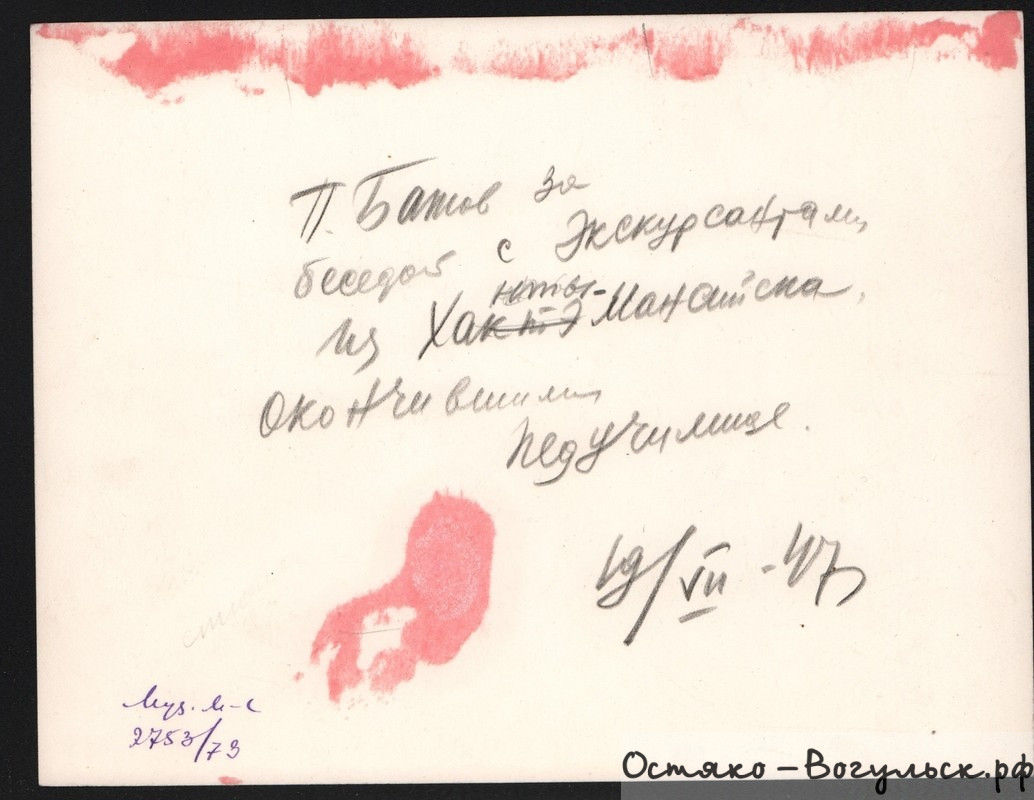 П. Батов за
беседой с экскурсантами
из Ханты-Мансийска,
окончившими
педучилище.
19/VII - 47
Муз. М-С
2753/79
Остяко-Вогульск.рф